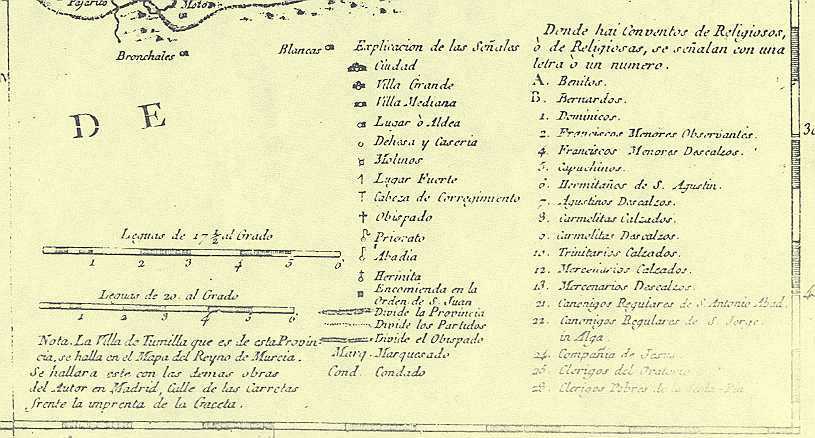 Pajarito
Motos
Bronchales
Blancas
D E
Leguas de 17 ½ al Grado
1 2 3 4 5 6
Leguas de 20. al Grado
1 2 3 4 5 6
Nota. La Villa de Tumilla que es de esta Provin
cia, se halla en el Mapa del Reyno de Murcia.
Se hallara este con las demas obras
del Autor en Madrid, Calle de las Carretas
frente la imprenta de la Gaceta.
Explicacion de las Señales
Ciudad
Villa Grande
Villa Mediana
Lugar ò Aldea
Dehesa y Caseria
Molinos
Lugar Fuerte
Cabeza de Corregimiento
Obispado
Priorato
Abadia
Hermita
Encomienda en la
Orden de S. Juan
Divide la Provincia
Divide los Partidos
Divide el Obispado
Marq. Marquesado
Cond. Condado
Donde hai Conventos de Religiosos,
ò de Religiosas, se señalan con una
letra ò un numero.
A. Benitos.
B. Bernardos.
1. Dominicos.
2. Franciscos Menores Observantes.
4. Franciscos Menores Descalzos.
5. Capuchinos.
6. Hermitaños de S. Agustin.
7. Agustinos Descalzos.
8. Carmelitas Calzados.
9. Carmelitas Descalzos.
10. Trinitarios Calzados.
12. Mercenarios Calzados.
13. Mercenarios Descalzos.
21. Canonigos Reglares de S. Antonio Abad.
22. Canonigos Regulares de S. Jorge
in Alga.
24. Compañia de Jesus.
26. Clerigos del Oratorio
28. Clerigos Pobres de la